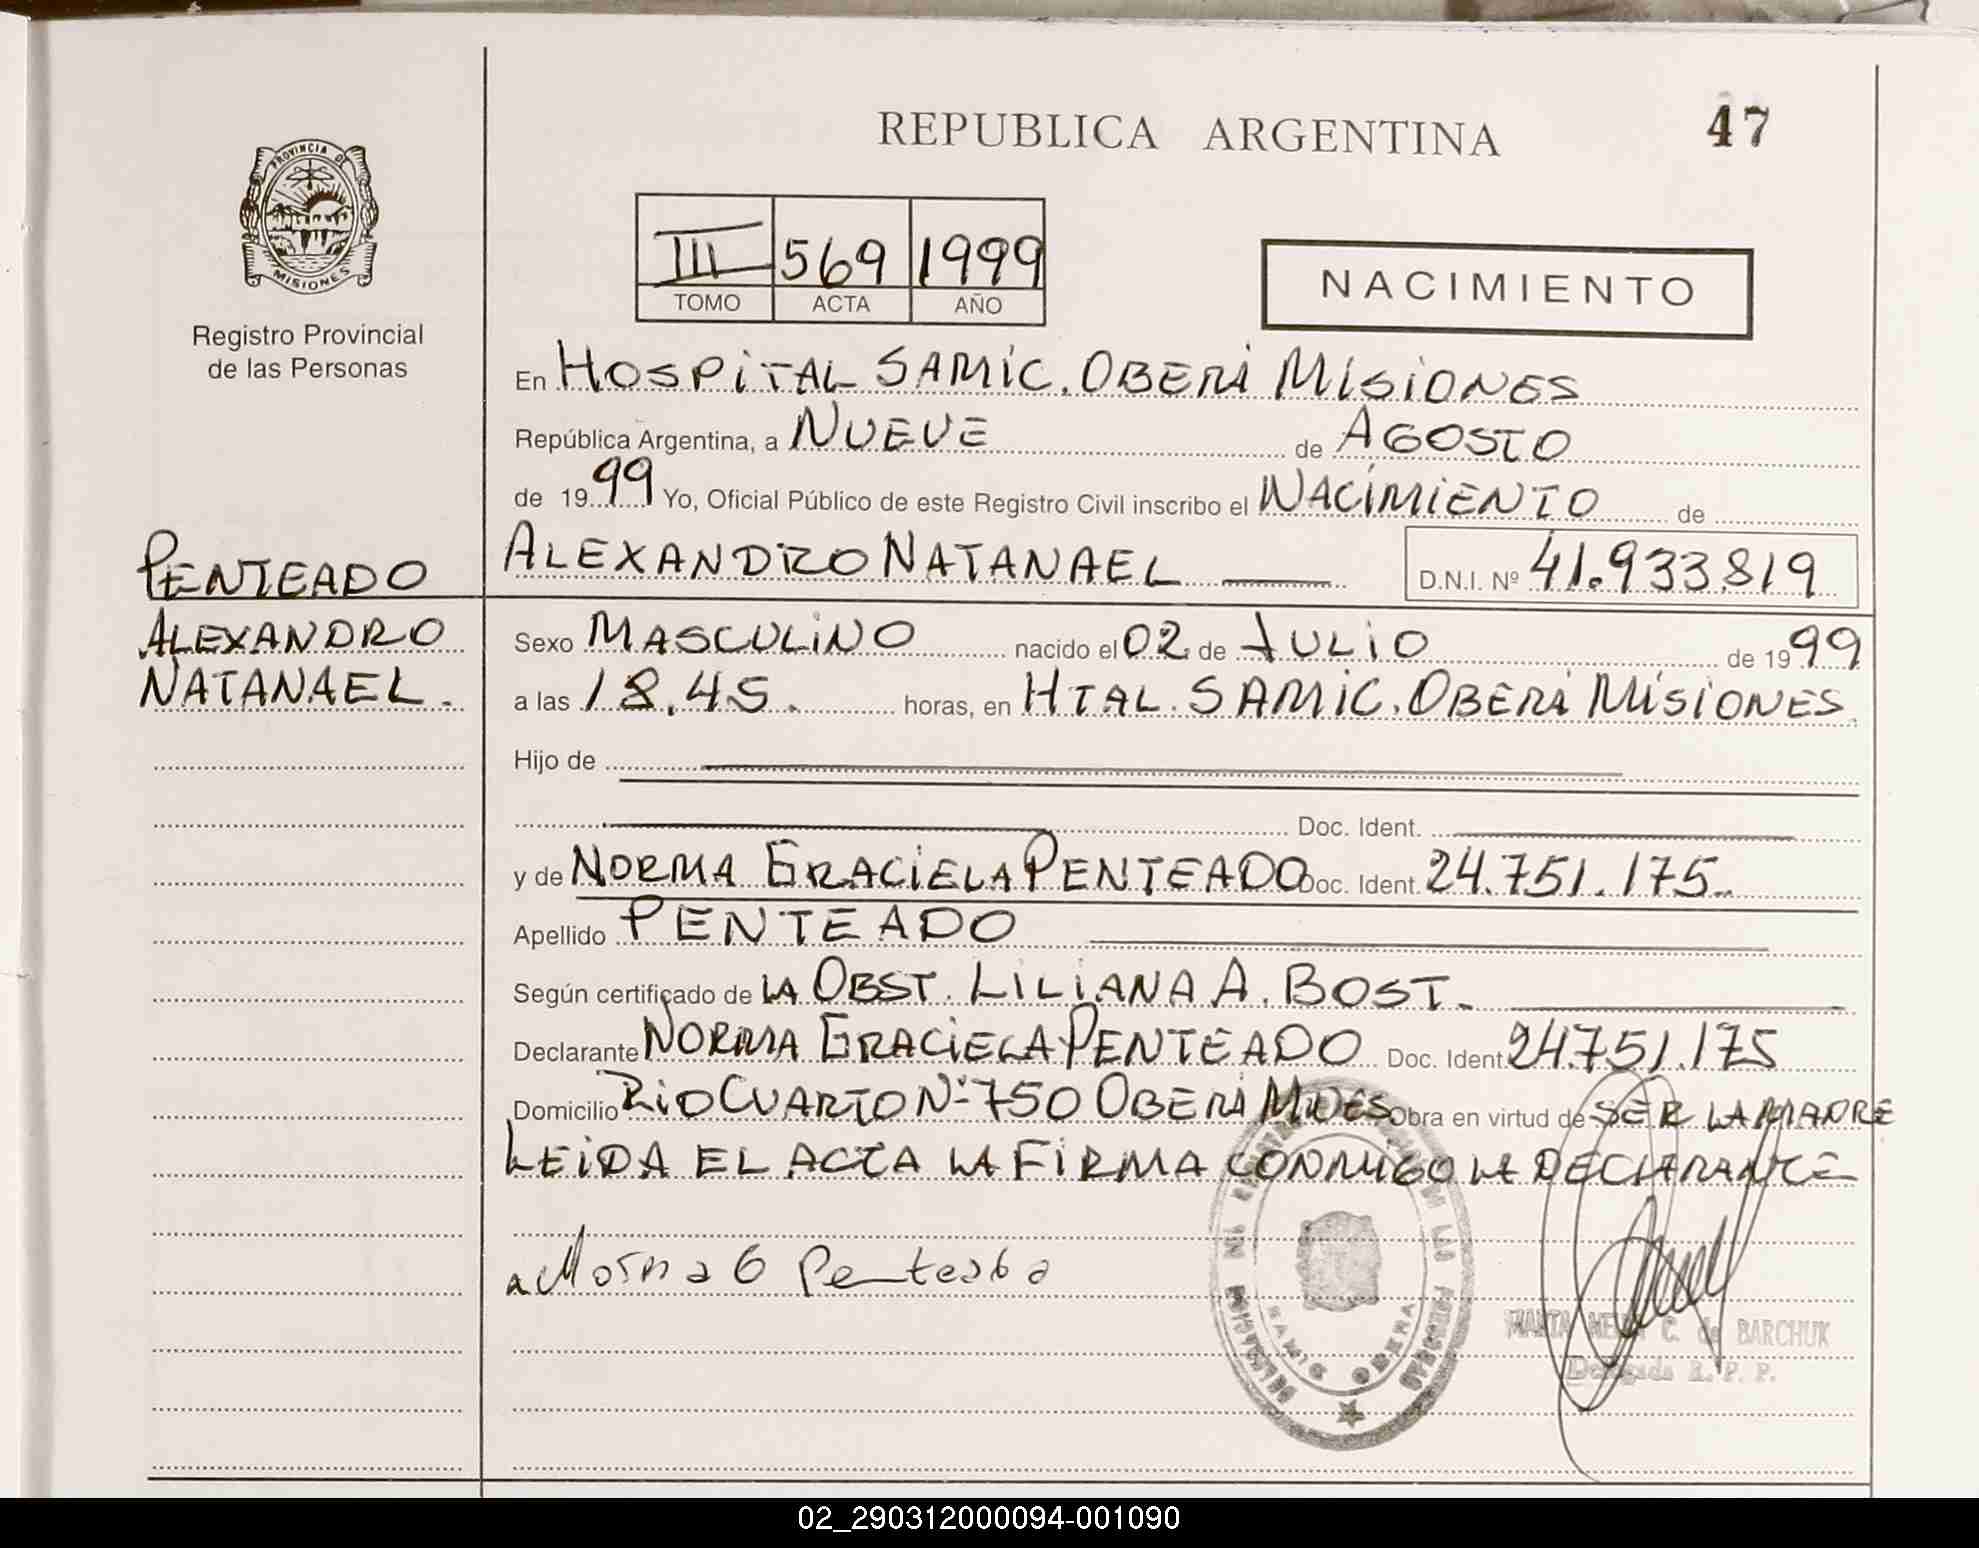 REPUBLICA ARGENTINA
47
PROVINCIA DE
MISIONES
Registro Provincial
de las Personas
III 569 1999
TOMO ACTA AÑO
NACIMIENTO
En HOSPITAL SAMIC. OBERÁ MISIONES
República Argentina, a NUEVE de AGOSTO
de 1999 Yo, Oficial Público de este Registro Civil inscribo el NACIMIENTO de
ALEXANDRO NATANAEL D.N.I. Nº 41.933.819
PENTEADO
ALEXANDRO
NATANAEL.
Sexo MASCULINO nacido el 02 de JULIO de 1999
a las 18.45. horas, en HTAL. SAMIC. OBERÁ MISIONES.
Hijo de
Doc. Ident.
y de NORMA GRACIELA PENTEADO Doc. Ident. 24.751.175.
Apellido PENTEADO
Según certificado de LA OBST. LILIANA A. BOST.
Declarante NORMA GRACIELA PENTEADO Doc. Ident. 24.751.175
Domicilio RIO CUARTO Nº 750 OBERÁ MNES Obra en virtud de SER LA MADRE
LEIDA EL ACTA LA FIRMA CONMIGO LA DECLARANTE
Norma G Penteado
SAMIC OBERA
C. de BARCHUK
Delegada R. P. P.
02_290312000094-001090